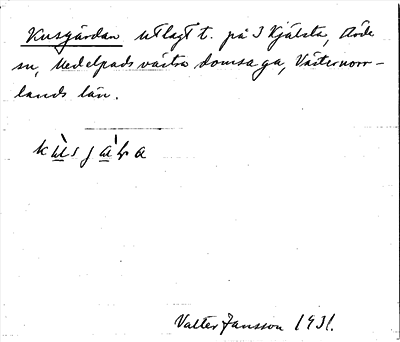 Kusgården utlagt t. på 3 Kjälsta,
sn, Medelpads västra domsaga, Västernorr-
lands län.
Valter Jansson 1931.